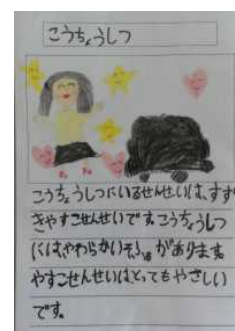 こうちょうしつ
こうちょうしつにいるせんせいは、すず
きやすこせんせいです。こうちょうしつ
にはやわらかいそふぁがあります。
やすこせんせいはとってもやさしい
です。